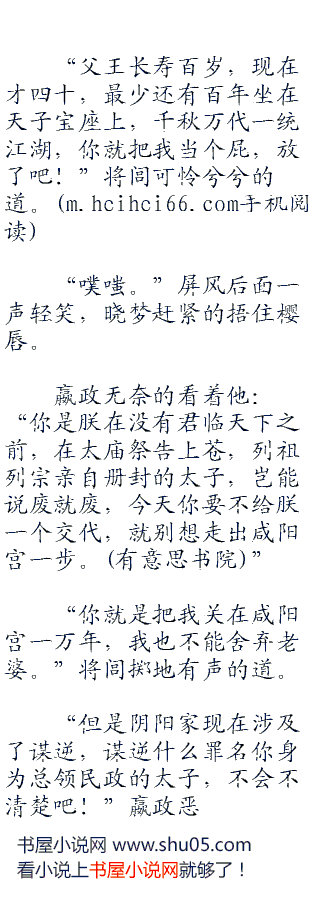 “父王长寿百岁，现在
才四十，最少还有百年坐在
天子宝座上，千秋万代一统
江湖，你就把我当个屁，放
了吧！”将闾可怜兮兮的
道。(m.hcihci66.com手机阅
读)
“噗嗤。”屏风后面一
声轻笑，晓梦赶紧的捂住樱
唇。
嬴政无奈的看着他：
“你是朕在没有君临天下之
前，在太庙祭告上苍，列祖
列宗亲自册封的太子，岂能
说废就废，今天你要不给朕
一个交代，就别想走出咸阳
宫一步。(有意思书院)”
“你就是把我关在咸阳
宫一万年，我也不能舍弃老
婆。”将闾掷地有声的道。
“但是阴阳家现在涉及
了谋逆，谋逆什么罪名你身
为总领民政的太子，不会不
清楚吧！”嬴政恶
书屋小说网 www.shu05.com
看小说上书屋小说网就够了！